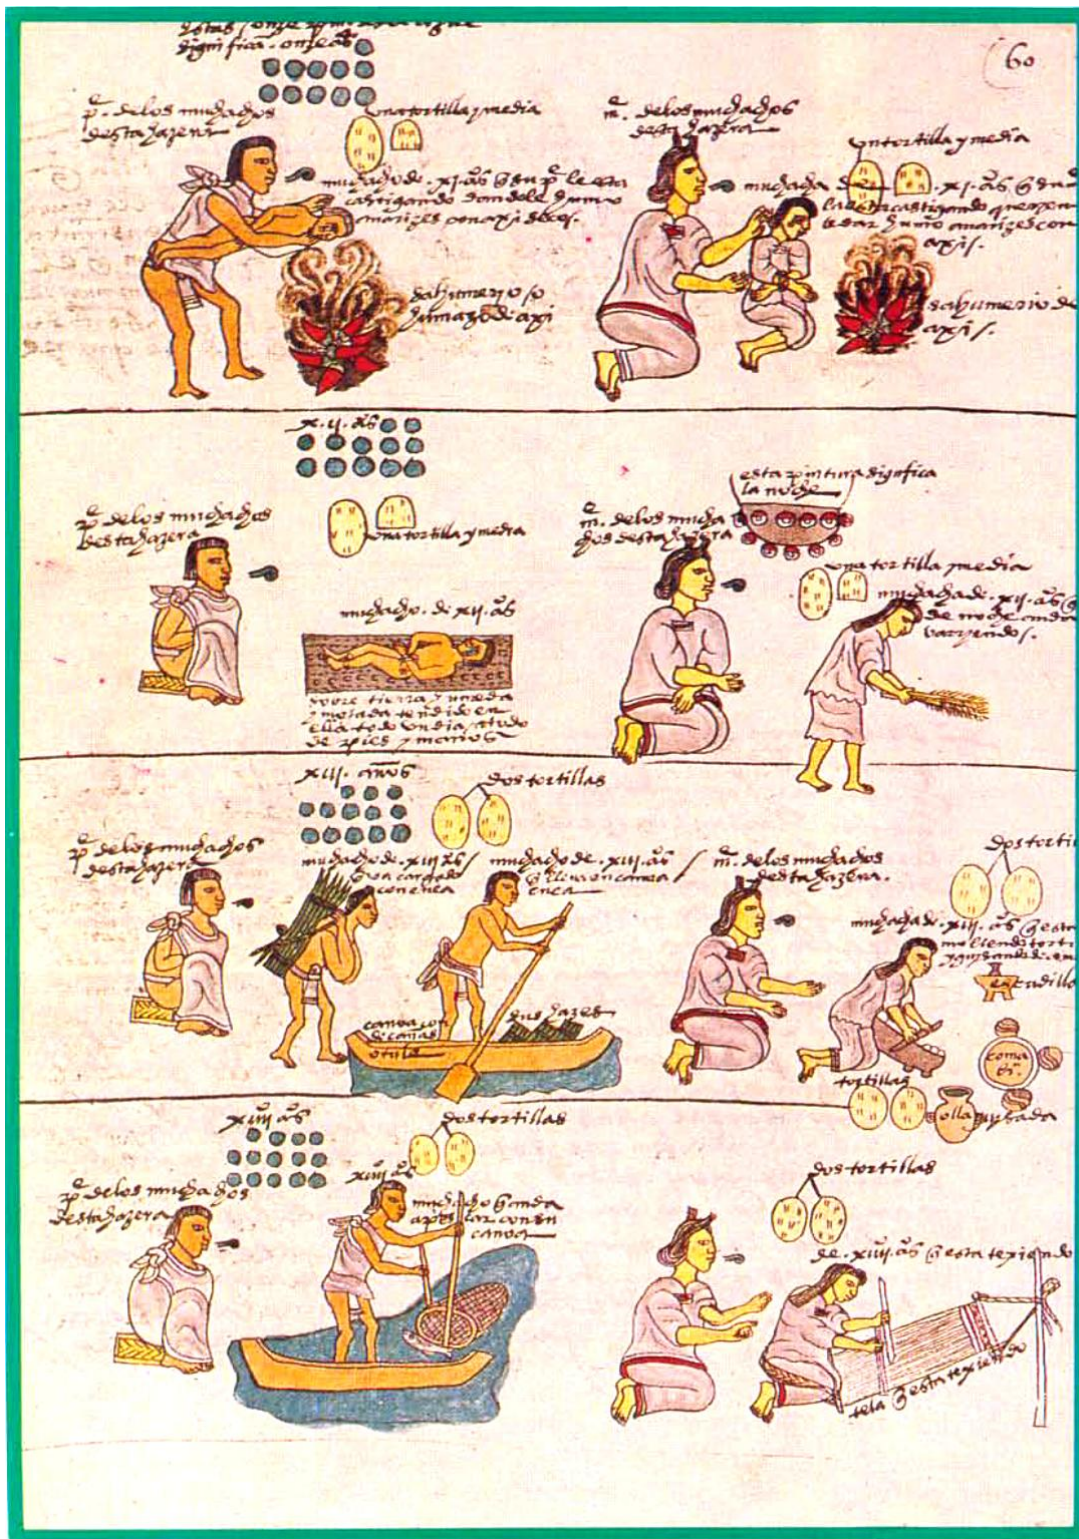 significa. onze aos
60
pe. de los muchachos
desta hazera
una tortilla y media
muchacho de .xi. aos q̃ su pe le esta
castigando dandole humo
a narizes con axi secos.
sahumerio so
humazo de axi
me. de los muchachos
desta hazera
un tortilla y media
muchacha de .xi. aos q̃ su
axis.
sahumerio de
axis.
x.ii. aos
pe de los muchachos
desta hazera
una tortilla y media
muchacho. de xii. aos
sobre tierra
y mojada tendido en
ella todo un dia atado
de pies y manos
esta pintura significa
la noche
me. de los mucha
chos desta hazera
una tortilla y media
muchacha de. xii. aos q̃
de noche anda
varriendo.
xiii. años
dos tortillas
pe de los muchachos
desta hazera
muchacho de. xiii aos
q̃ va cargado
con enea
muchacho de. xiii. aos
q̃ lleva en canoa
enea
canoa con
de cañas
o tule
dos hazes
me. de los muchachos
desta hazera.
dos torti
muchacha de. xiii. aos q̃ esta
moliendo torti
escudilla
coma
tortillas
olla
xiiii aos
dos tortillas
xiiii aos
pe de los muchachos
desta hazera
muchacho q̃ anda
a pescar con su
canoa
dos tortillas
de. xiiii. aos q̃ esta texiendo
tela q̃ esta texiendo